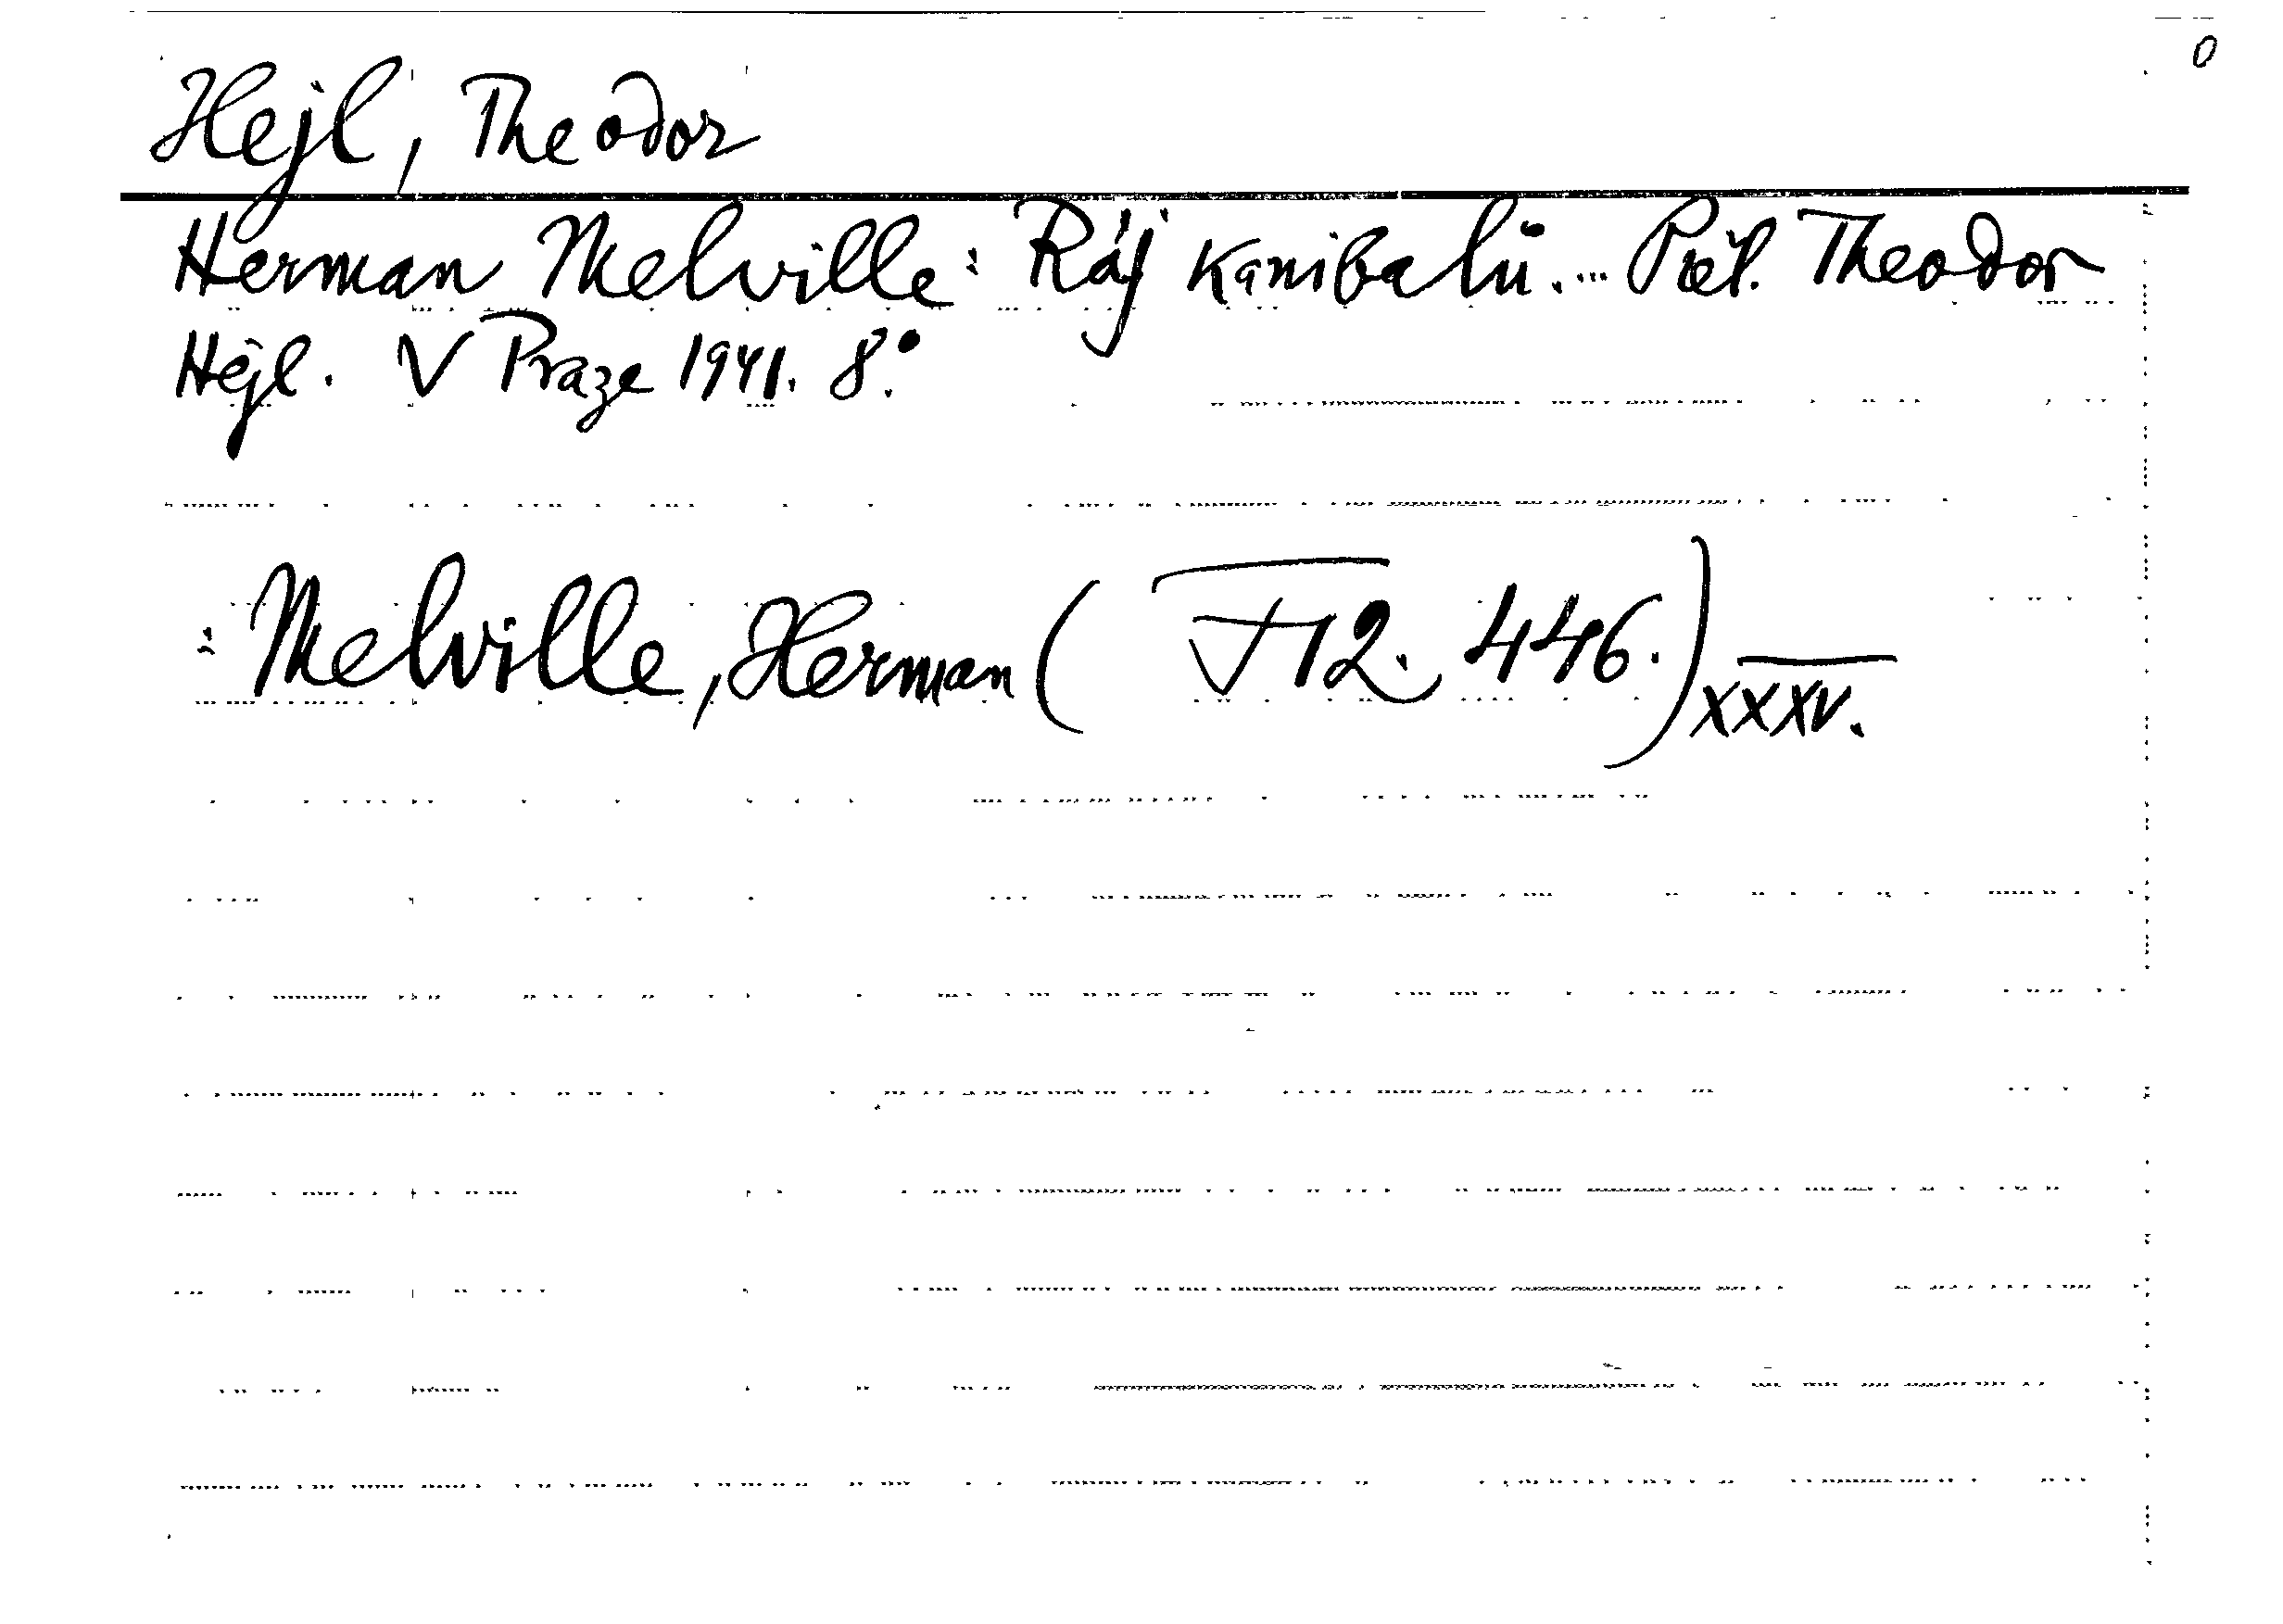 0
Hejl, Theodor
Herman Melville: Ráj kanibalů.... Přel. Theodor
Hejl. V Praze 1941. 8°.
: Melville, Herman ( 12. 446.) XXXV.